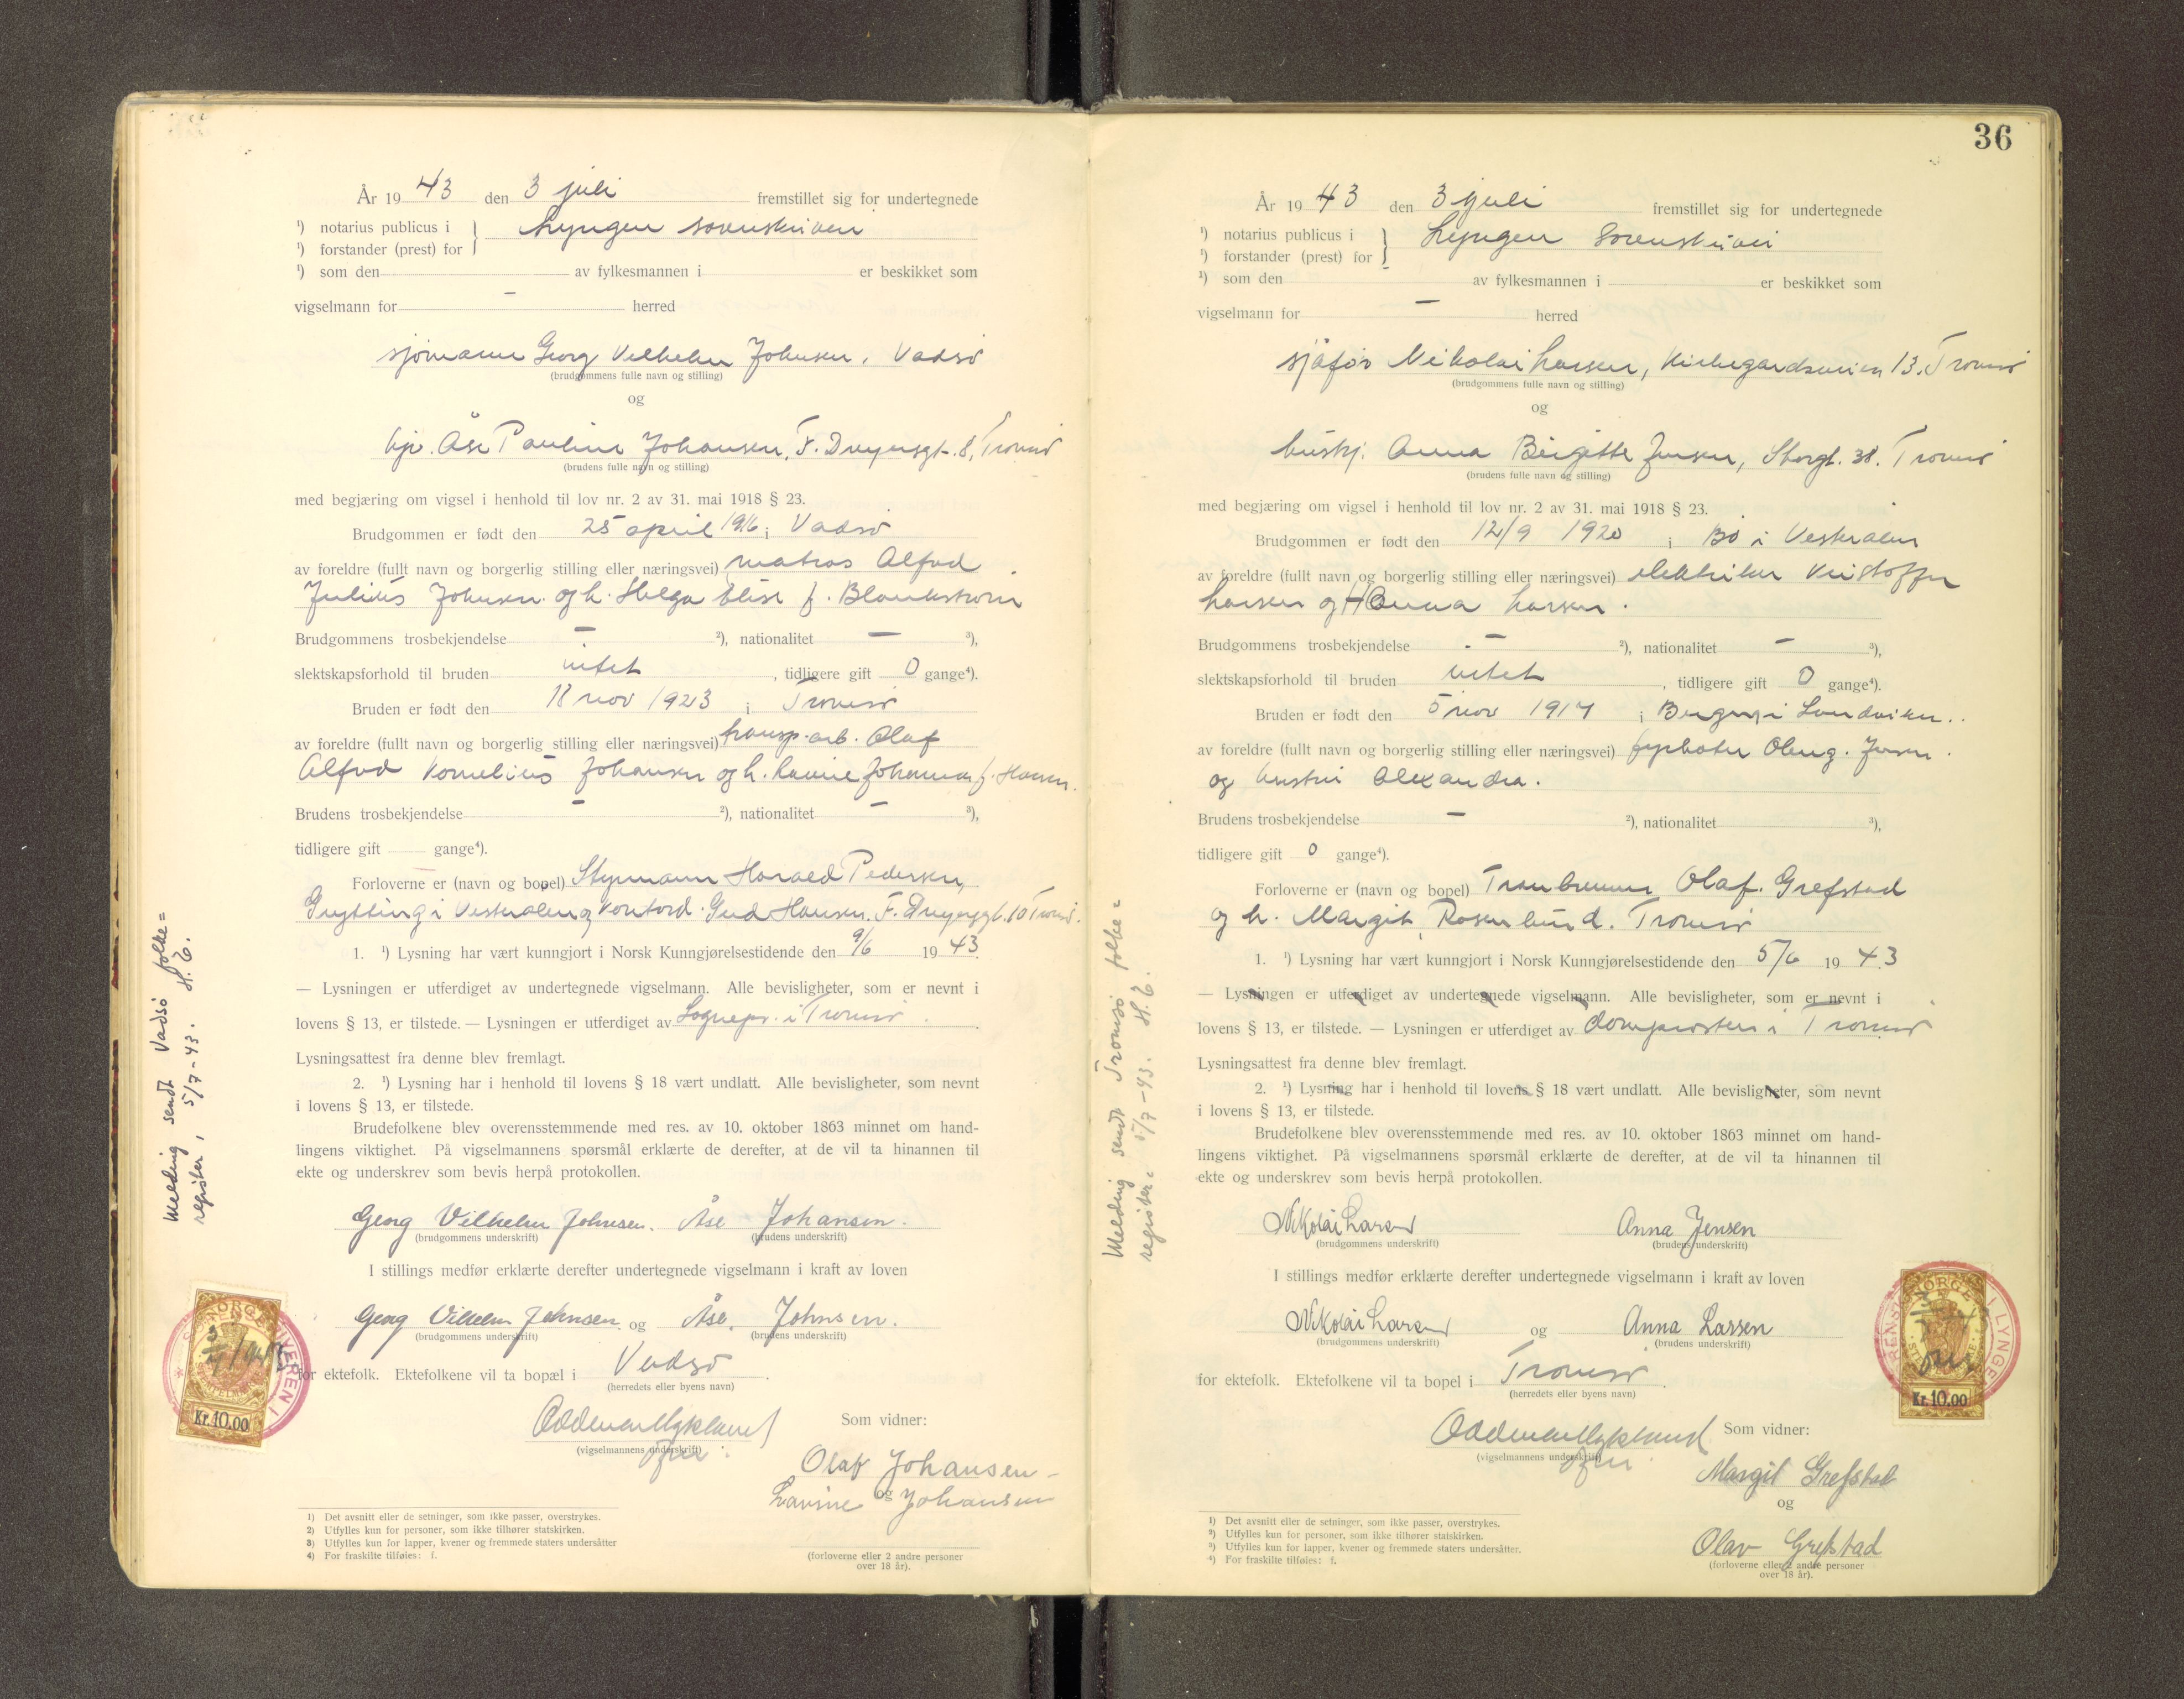 År 19 43 den 3 juli fremstillet sig for undertegnede
¹) notarius publicus i } Lyngen sorenskriveri
¹) forstander (prest) for
¹) som den av fylkesmannen i er beskikket som
vigselmann for — herred
sjømann Georg Vilhelm Johnsen, Vadsø
(brudgommens fulle navn og stilling)
og
hjp. Åse Pauline Johansen, F. Dreyersgt. 8, Tromsø
(brudens fulle navn og stilling)
med begjæring om vigsel i henhold til lov nr. 2 av 31. mai 1918 § 23.
Brudgommen er født den 25 april 1916 i Vadsø
av foreldre (fullt navn og borgerlig stilling eller næringsvei) matros Alfred
Julius Johnsen og h. Helga Elise f. Blankstrøm
Brudgommens trosbekjendelse — ²), nationalitet — ³),
slektskapsforhold til bruden intet, tidligere gift 0 gange⁴).
Bruden er født den 18 nov 1923 i Tromsø
av foreldre (fullt navn og borgerlig stilling eller næringsvei) transp. arb. Olaf
Alfred Kornelius Johansen og h. Lavine Johanna f. Hansen.
Brudens trosbekjendelse — ²), nationalitet — ³),
tidligere gift gange⁴).
Forloverne er (navn og bopel) Styrmann Harald Pedersen,
i Vesterålen og kontord. Hansen. F. Dreyersgt. 10 Tromsø.
1. ¹) Lysning har vært kunngjort i Norsk Kunngjørelsestidende den 9/6 19 43.
— Lysningen er utferdiget av undertegnede vigselmann. Alle bevisligheter, som er nevnt i
lovens § 13, er tilstede. — Lysningen er utferdiget av Sognepr. i Tromsø.
Lysningsattest fra denne blev fremlagt.
2. ¹) Lysning har i henhold til lovens § 18 vært undlatt. Alle bevisligheter, som nevnt
i lovens § 13, er tilstede.
Brudefolkene blev overensstemmende med res. av 10. oktober 1863 minnet om hand-
lingens viktighet. På vigselmannens spørsmål erklærte de derefter, at de vil ta hinannen til
ekte og underskrev som bevis herpå protokollen.
Georg Vilhelm Johnsen. Åse Johansen.
(brudgommens underskrift) (brudens underskrift)
I stillings medfør erklærte derefter undertegnede vigselmann i kraft av loven
Georg Vilhelm Johnsen og Åse. Johnsen.
(brudgommens underskrift) (brudens underskrift)
for ektefolk. Ektefolkene vil ta bopæl i Vadsø.
(herredets eller byens navn)
(vigselmannens underskrift)
Som vidner:
Olaf Johansen
og
Lavine Johansen
(forloverne eller 2 andre personer
over 18 år).
1) Det avsnitt eller de setninger, som ikke passer, overstrykes.
2) Utfylles kun for personer, som ikke tilhører statskirken.
3) Utfylles kun for lapper, kvener og fremmede staters undersåtter
4) For fraskilte tilføies: f.
Melding sendt Vadsø folke=
register, 5/7-43. H. E.
NORGE
Kr. 10.00
36
År 19 43 den 3 juli fremstillet sig for undertegnede
¹) notarius publicus i } Lyngen sorenskriveri
¹) forstander (prest) for
¹) som den av fylkesmannen i er beskikket som
vigselmann for — herred
sjåfør Nikolai Larsen, Kirkegardsveien 13. Tromsø
(brudgommens fulle navn og stilling)
og
hushj. Anna Birgitte Jensen, Storgt. 38. Tromsø
(brudens fulle navn og stilling)
med begjæring om vigsel i henhold til lov nr. 2 av 31. mai 1918 § 23.
Brudgommen er født den 12/9 1920 i Bø i Vesterålen
av foreldre (fullt navn og borgerlig stilling eller næringsvei) elektriker Kristoffer
Larsen og Hanna Larsen.
Brudgommens trosbekjendelse — ²), nationalitet — ³),
slektskapsforhold til bruden intet, tidligere gift 0 gange⁴).
Bruden er født den 5 nov 1917 i Bergen i Sandviken..
av foreldre (fullt navn og borgerlig stilling eller næringsvei) fyrbøter Jensen.
og hustru Alexandra.
Brudens trosbekjendelse — ²), nationalitet ³),
tidligere gift 0 gange⁴).
Forloverne er (navn og bopel) Tranbrenner Olaf. Grefstad
og h. Margit, Rosenlund. Tromsø
1. ¹) Lysning har vært kunngjort i Norsk Kunngjørelsestidende den 5/6 19 43
— Lysningen er utferdiget av undertegnede vigselmann. Alle bevisligheter, som er nevnt i
lovens § 13, er tilstede. — Lysningen er utferdiget av domprosten i Tromsø
Lysningsattest fra denne blev fremlagt.
2. ¹) Lysning har i henhold til lovens § 18 vært undlatt. Alle bevisligheter, som nevnt
i lovens § 13, er tilstede.
Brudefolkene blev overensstemmende med res. av 10. oktober 1863 minnet om hand-
lingens viktighet. På vigselmannens spørsmål erklærte de derefter, at de vil ta hinannen til
ekte og underskrev som bevis herpå protokollen.
Nikolai Larsen Anna Jensen
(brudgommens underskrift) (brudens underskrift)
I stillings medfør erklærte derefter undertegnede vigselmann i kraft av loven
Nikolai Larsen og Anna Larsen
(brudgommens underskrift) (brudens underskrift)
for ektefolk. Ektefolkene vil ta bopel i Tromsø.
(herredets eller byens navn)
(vigselmannens underskrift)
Som vidner:
Margit Grefstad
og
Olav Grefstad
(forloverne eller 2 andre personer
over 18 år).
1) Det avsnitt eller de setninger, som ikke passer, overstrykes.
2) Utfylles kun for personer, som ikke tilhører statskirken.
3) Utfylles kun for lapper, kvener og fremmede staters undersåtter.
4) For fraskilte tilføies: f.
Melding sendt Tromsø folke=
register. 5/7-43. H. E.
NORGE
I LYNGEN
Kr. 10.00